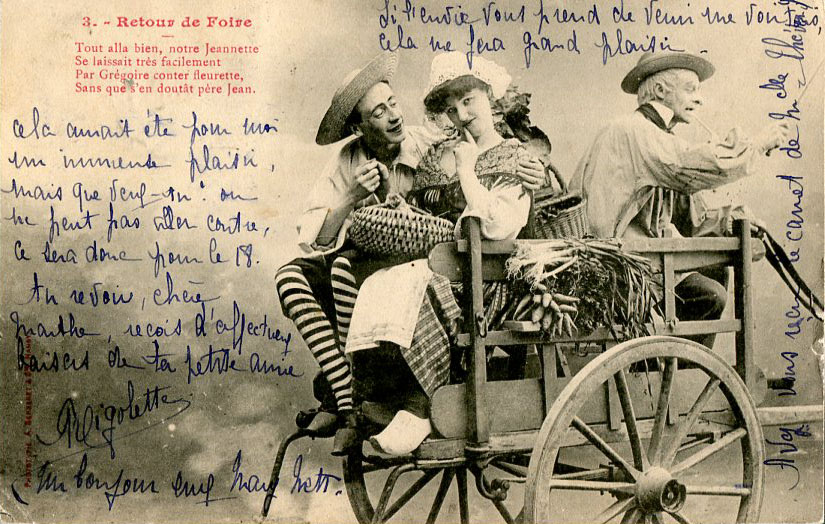 3. - Retour de Foire
Tout alla bien, notre Jeannette
Se laissait très facilement
Par Grégoire conter fleurette,
Sans que s'en doutât père Jean.
Si l'envie vous prend de venir me voir
cela me fera grand plaisir.
cela aurait été pour moi
un immense plaisir,
mais que veux-tu? on
ne peut pas aller contre,
ce sera donc pour le 18.
Au revoir, chère
Marthe, reçois d'affectueux
baisers de ta petite amie
Rigolette
Un bonjour aux
Avez vous reçu le carnet de Melle